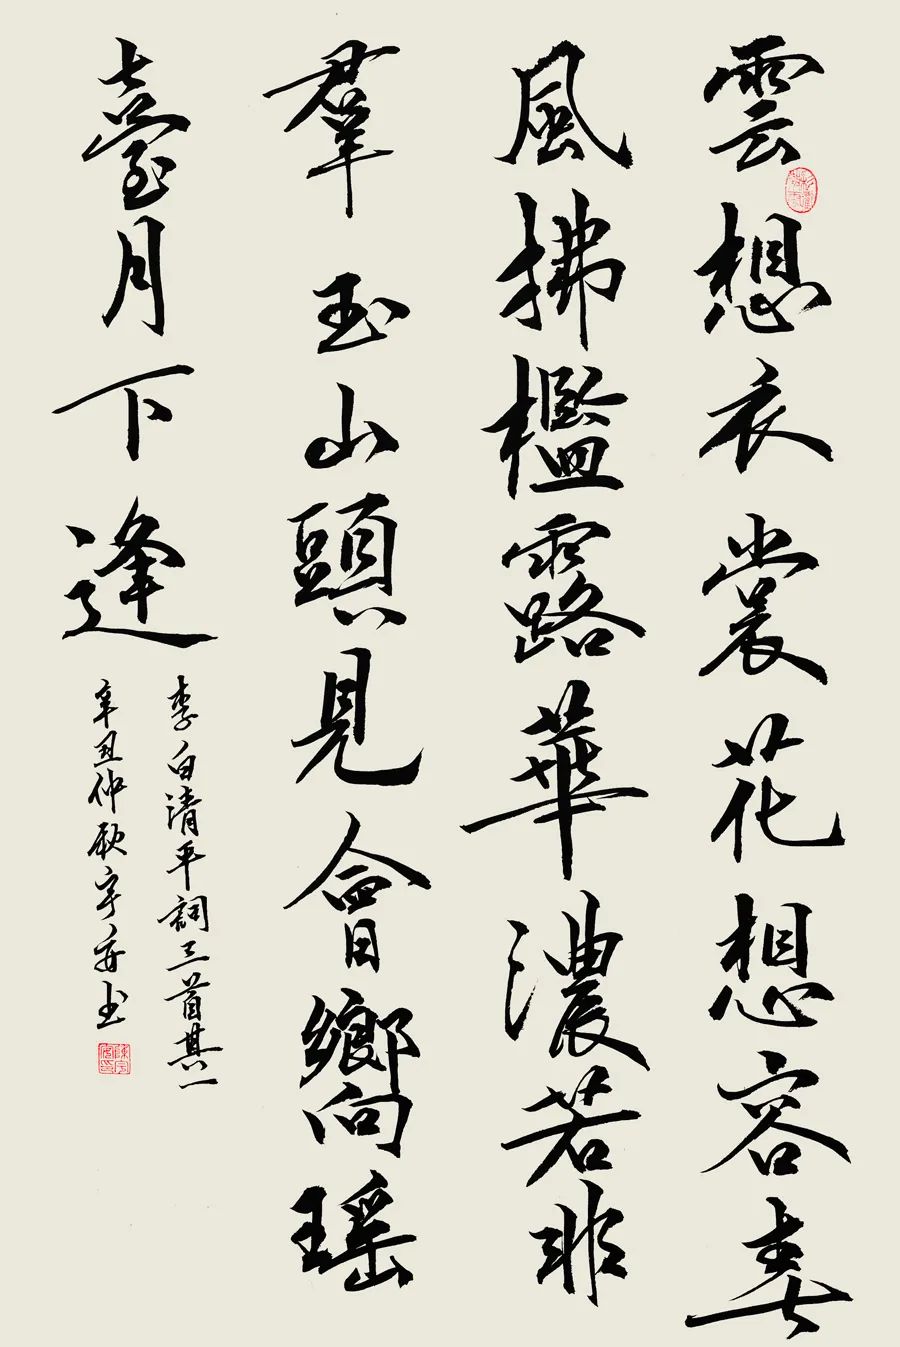 雲想衣裳花想容春
風拂檻露華濃若非
羣玉山頭見會嚮瑶
臺月下逢
李白清平詞三首其一
辛丑仲秋宇安书